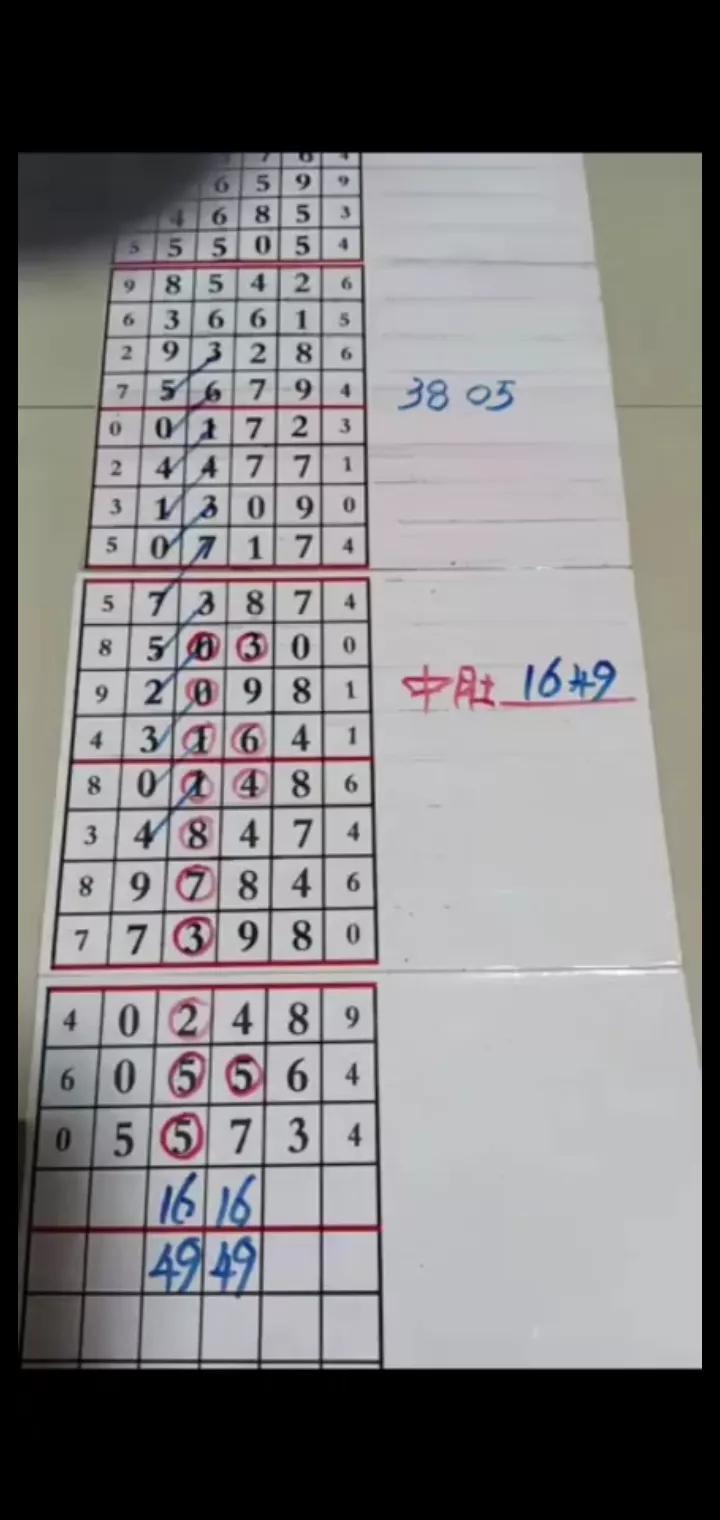 7 6 4
6 5 9 9
4 6 8 5 3
5 5 5 0 5 4
9 8 5 4 2 6
6 3 6 6 1 5
2 9 3 2 8 6
7 5 6 7 9 4
38 05
0 0 1 7 2 3
2 4 4 7 7 1
3 1 3 0 9 0
5 0 7 1 7 4
5 7 3 8 7 4
8 5 0 3 0 0
9 2 0 9 8 1
中肚 16 49
4 3 1 6 4 1
8 0 1 4 8 6
3 4 8 4 7 4
8 9 7 8 4 6
7 7 3 9 8 0
4 0 2 4 8 9
6 0 5 5 6 4
0 5 5 7 3 4
16 16
49 49